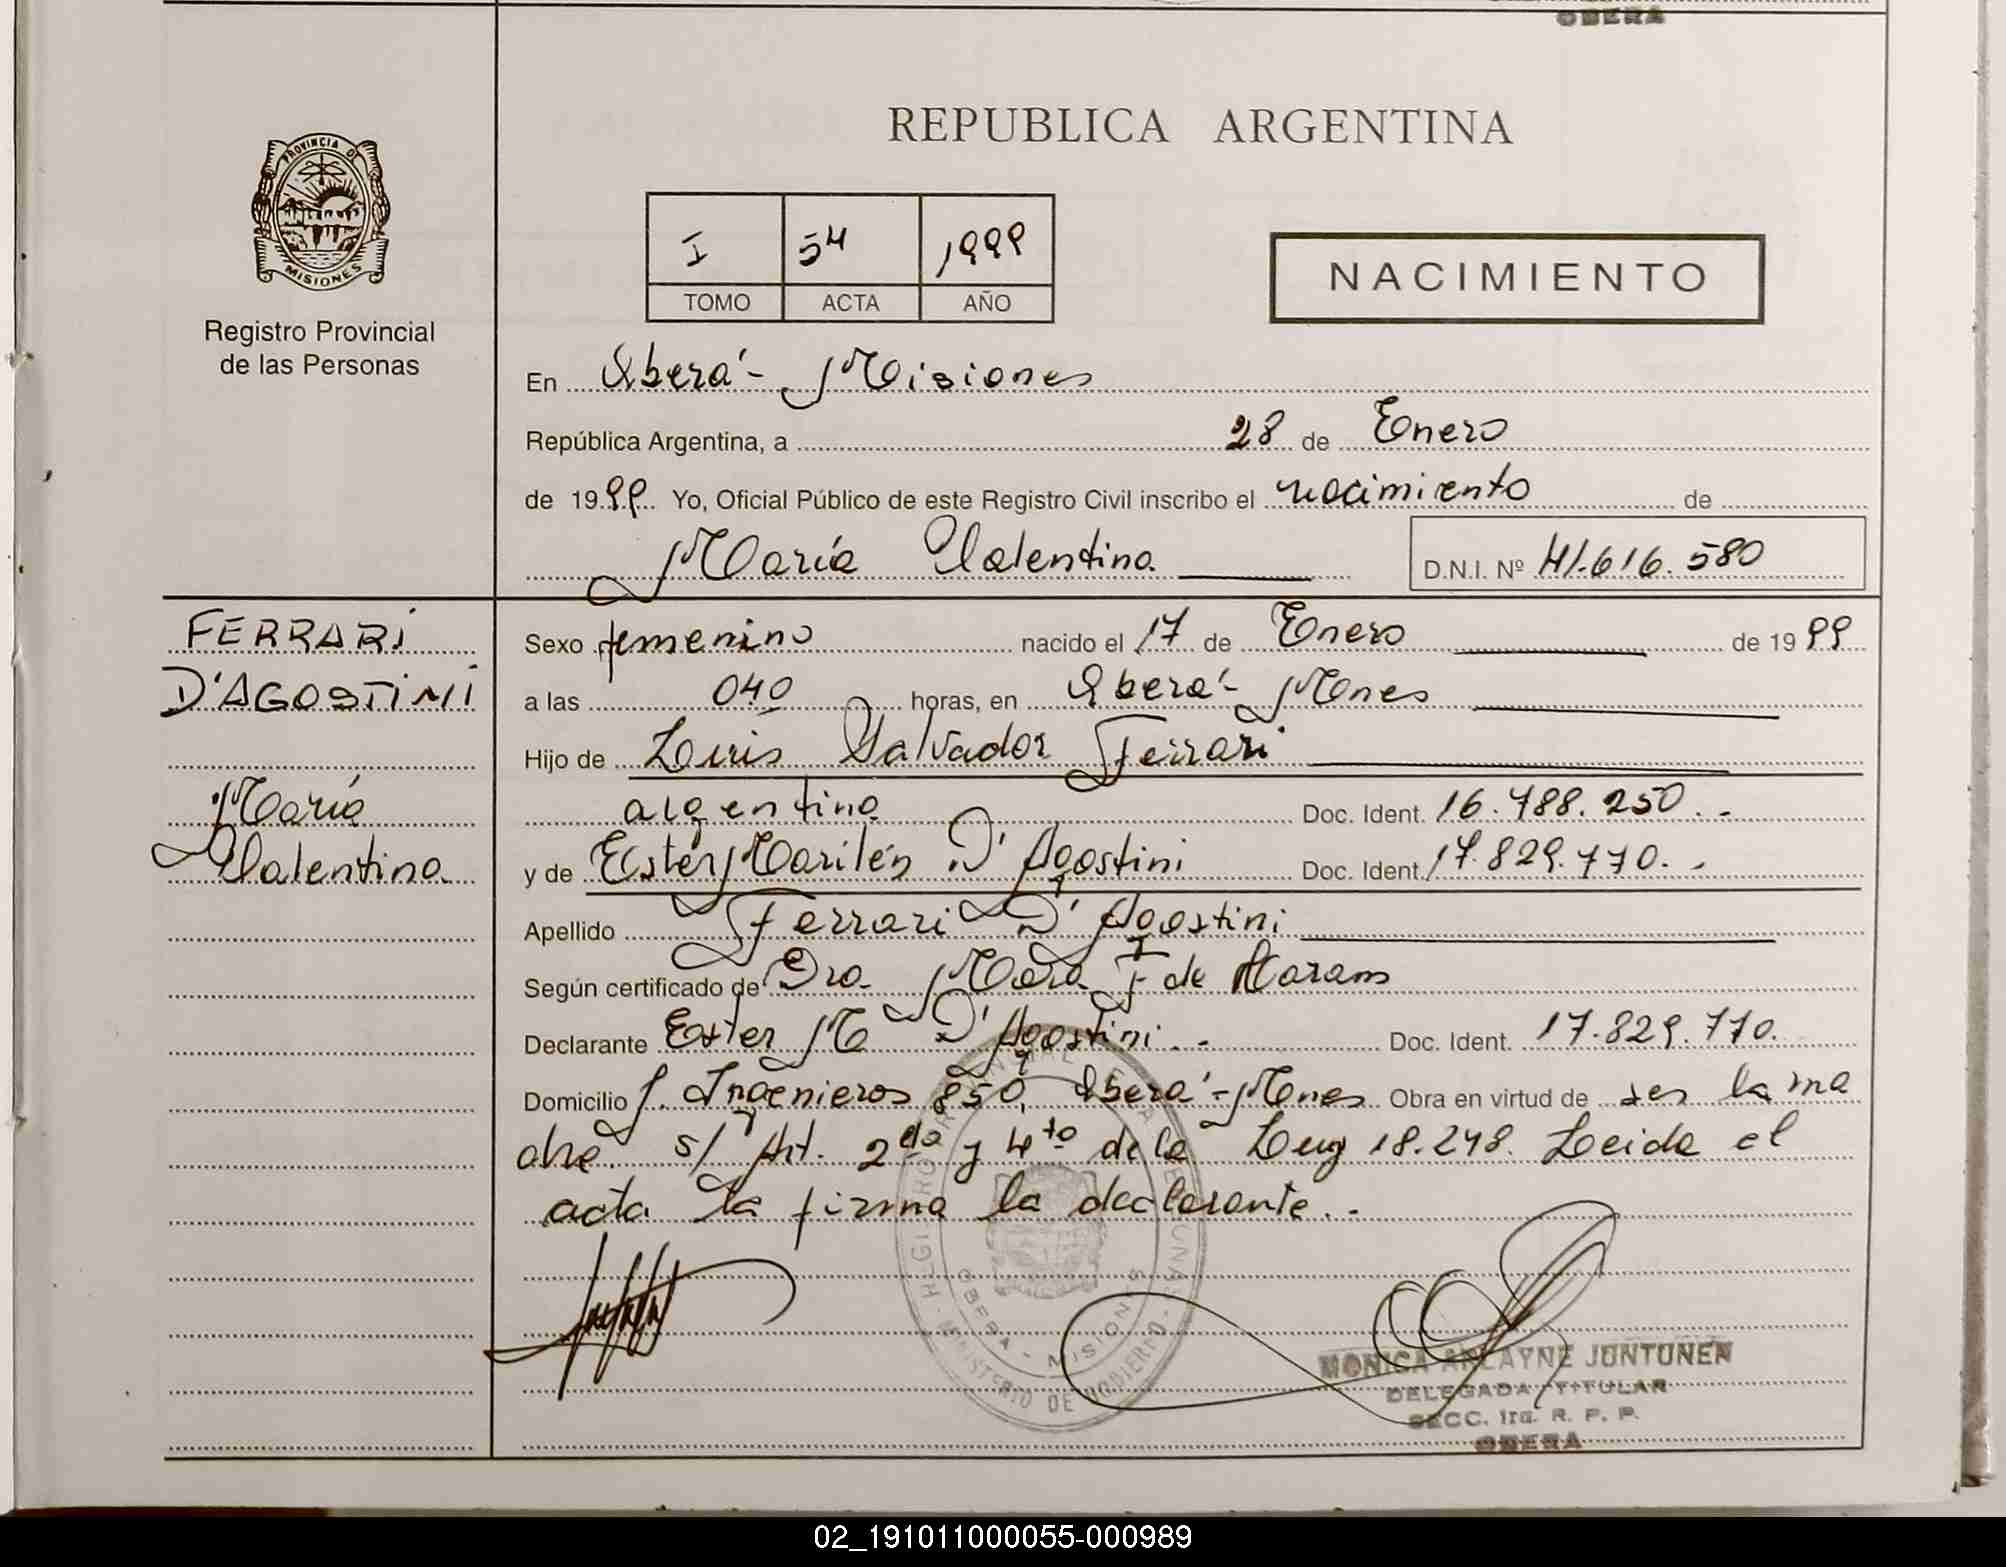 OBERA
REPUBLICA ARGENTINA
PROVINCIA D
MISIONES
Registro Provincial
de las Personas
I 54 1999
TOMO ACTA AÑO
NACIMIENTO
En Oberá - Misiones
República Argentina, a 28 de Enero
de 1999 Yo, Oficial Público de este Registro Civil inscribo el nacimiento de
María Valentina
D.N.I. Nº 41.616.580
FERRARI
D'AGOSTINI
María
Valentina
Sexo femenino nacido el 17 de Enero de 1999
a las 040 horas, en Oberá - Mones
Hijo de Luis Salvador Ferrari
argentina Doc. Ident. 16.788.250.-
y de Ester Marilén D'Agostini Doc. Ident. 17.829.770.-
Apellido Ferrari D'Agostini
Según certificado de Dra. Mara F de
Declarante Ester M D'Agostini.- Doc. Ident. 17.829.770.
Domicilio J. Ingenieros 850, Oberá - Mones Obra en virtud de ser la ma
dre. s/ Art. 2do y 4to de la Ley 18.248. Leida el
acta la firma la declarante.-
OBERA - MISIONES
MINISTERIO DE GOBIERNO
MONICA ARLAYNE JUNTUNEN
DELEGADA TITULAR
SECC. 1ra. R. P. P.
OBERA
02_191011000055-000989